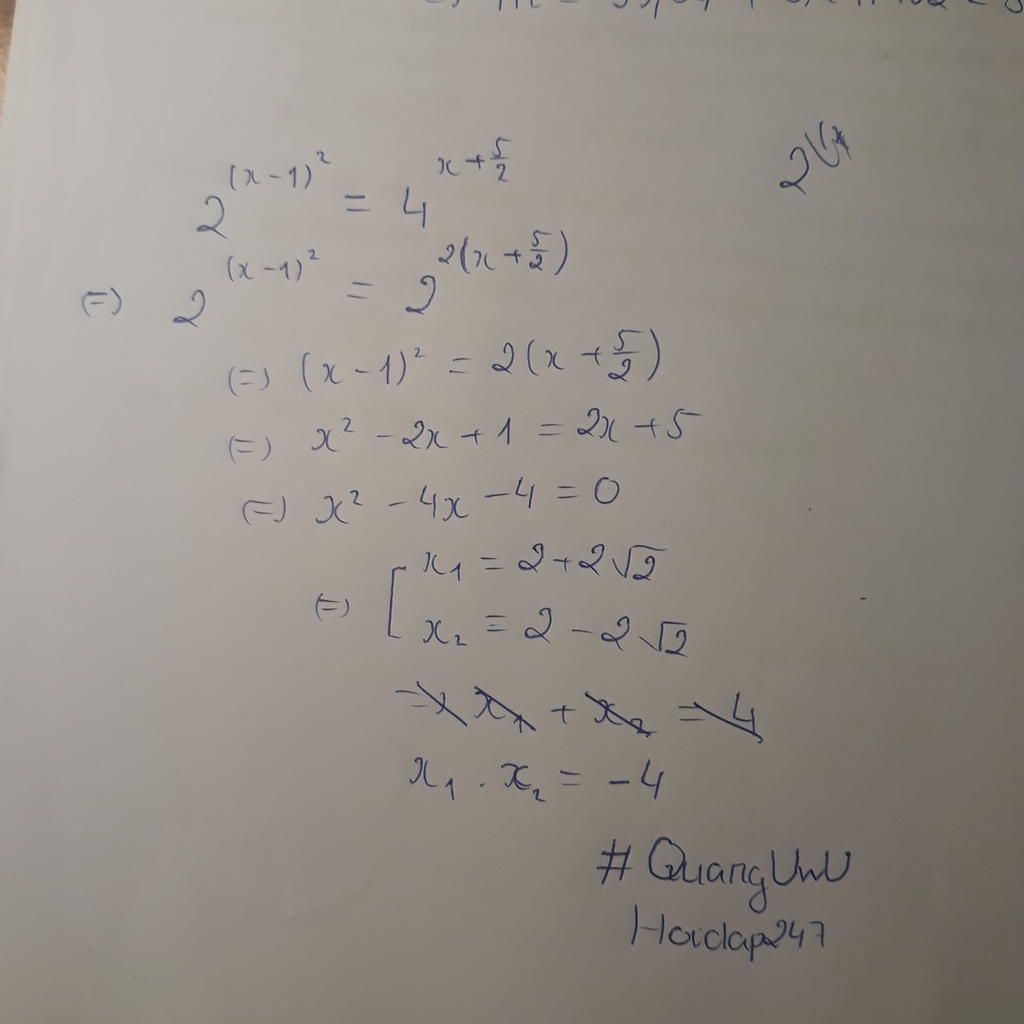 2^{(x-1)^2} = 4^{x+\frac{5}{2}}
(=) 2^{(x-1)^2} = 2^{2(x+\frac{5}{2})}
(=) (x-1)^2 = 2(x+\frac{5}{2})
(=) x^2 - 2x + 1 = 2x + 5
(=) x^2 - 4x - 4 = 0
(=) [ x_1 = 2 + 2√2
x_2 = 2 - 2√2
=> x_1 + x_2 = 4
x_1 . x_2 = -4
# QuangUwU
Hoidap247